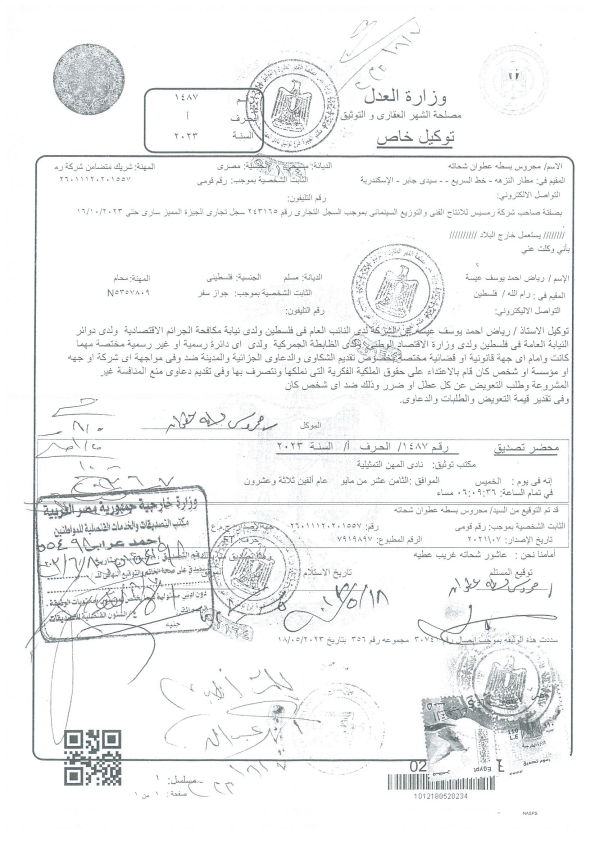 وزارة العدل
مصلحة الشهر العقارى و التوثيق
توكيل خاص
١٤٨٧
الحرف أ
السنة ٢٠٢٣
الاسم/ محروس بسطه عطوان شحاته
الديانة: مسيحى
الجنسية: مصرى
المهنة: شريك متضامن شركة رم
المقيم في: مطار النزهه - خط السريع - - سيدى جابر - الإسكندرية
الثابت الشخصية بموجب: رقم قومى
٢٦٠١١١٢٠٢٠١٥٥٧
التواصل الالكتروني:
رقم التليفون:
بصفتة صاحب شركة رمسيس للانتاج الفنى والتوزيع السينمائى بموجب السجل التجارى رقم ٢٤٣١٦٥ سجل تجارى الجيزة المميز سارى حتى ١٦/١٠/٢٠٢٣
//////// يستعمل خارج البلاد //////////
بأني وكلت عني
؟
الإسم / رياض احمد يوسف عيسة
الديانة: مسلم
الجنسية: فلسطينى
المهنة: محام
المقيم فى: رام الله / فلسطين
الثابت الشخصية بموجب: جواز سفر
N٥٣٥٧٨٠٩
التواصل الالكتروني:
رقم التليفون:
توكيل الاستاذ / رياض احمد يوسف عيسة عن الشركة لدى النائب العام فى فلسطين ولدى نيابة مكافحة الجرائم الاقتصادية ولدى دوائر
النيابة العامة فى فلسطين ولدى وزارة الاقتصاد الوطنى ولدى الظابطة الجمركية ولدى اى دائرة رسمية او غير رسمية مختصة مهما
كانت وامام اى جهة قانونية او قضائية مختصة بخصوص تقديم الشكاوى والدعاوى الجزائية والمدينة ضد وفى مواجهة اى شركة او جهه
او مؤسسة او شخص كان قام بالاعتداء على حقوق الملكية الفكرية التى نملكها ونتصرف بها وفى تقديم دعاوى منع المنافسة غير
المشروعة وطلب التعويض عن كل عطل او ضرر وذلك ضد اى شخص كان
وفى تقدير قيمة التعويض والطلبات والدعاوى.
الموكل
محضر تصديق
رقم ١٤٨٧/ الحرف أ/ السنة ٢٠٢٣
مكتب توثيق: نادى المهن التمثيلية
إنه فى يوم : الخميس
الموافق : الثامن عشر من مايو
عام ألفين ثلاثة وعشرون
في تمام الساعة: ٠٦:٠٩:٣٦ مساء
قد تم التوقيع من السيد/ محروس بسطه عطوان شحاته
الثابت الشخصية بموجب: رقم قومى
رقم: ٢٦٠١١١٢٠٢٠١٥٥٧
تاريخ الإصدار: ٢٠٢١/٠٧
رقم المطبوع: ٧٩١٩٨٩٧
أمامنا نحن : عاشور شحاته غريب عطيه
توقيع المستلم
تاريخ الاستلام
وزارة خارجية جمهورية مصر العربية
مكتب التصديقات والخدمات القنصلية للمواطنين
أحمد عرابى
سددت هذه الوثيقه بموجب إيصال رقم ٣٠٧٤١ مجموعه رقم ٣٥٦ بتاريخ ١٨/٠٥/٢٠٢٣
Egypt
02
مسلسل: ١
صفحة : ١ من ١
1012180520234
NASPS